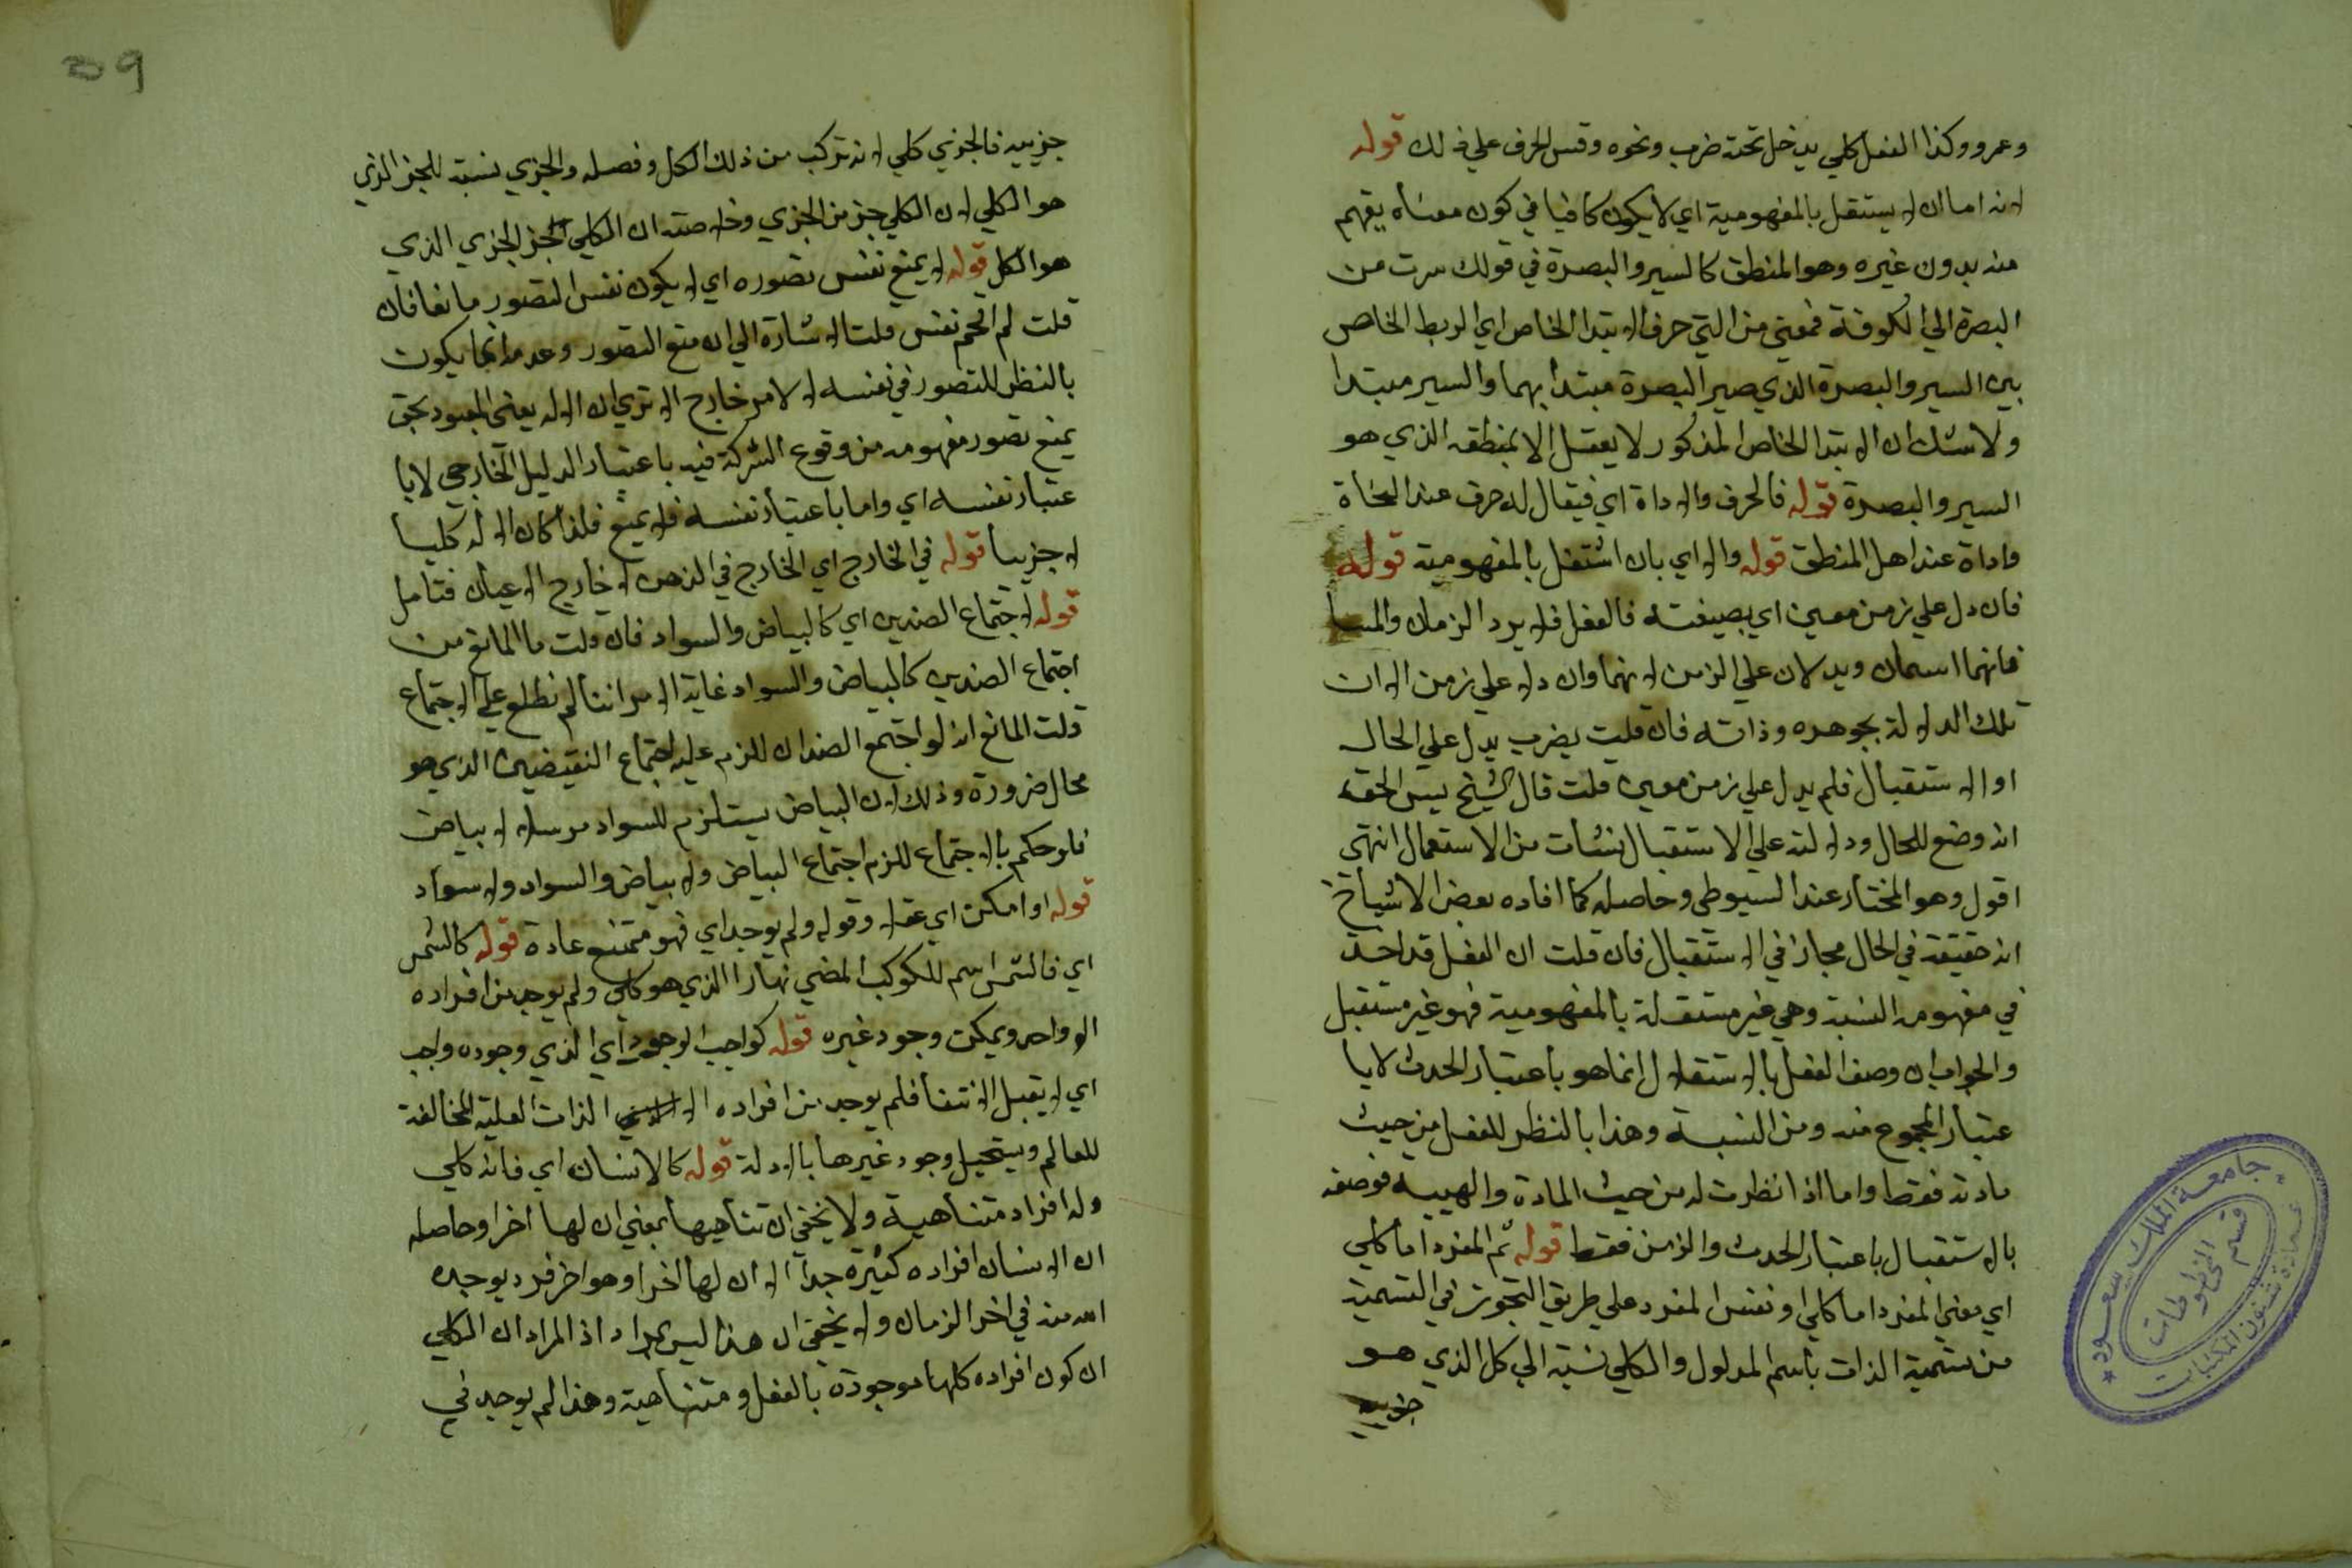 وعمرو وكذا الفعل كلي يدخل تحته ضرب ونحوه وقس الحرف علي ذلك قوله
لانه اما ان لا يستقل بالمفهومية اي لا يكون كافيا في كون معناه يفهم
منه بدون غيره وهو المنطق كالسير والبصرة في قولك سرت من
البصرة الي الكوفة فمعني من التي حرف الابتدا الخاص اي الربط الخاص
بين السير والبصرة الذي صير البصرة مبتدا بهما والسير مبتدا
ولا شك ان الابتدا الخاص المذكور لا يعقل الا بمنطقه الذي هو
السير والبصرة قوله فالحرف والاداة اي فيقال له حرف عند النحاة
واداة عند اهل المنطق قوله والا اي بان اشتقل بالمفهومية قوله
فان دل علي زمن معين اي بصيغته فالفعل فلا يرد الزمان والمسا
فانهما اسمان ويدلان علي الزمن لانهما وان دلا علي زمن الا ان
تلك الدلالة بجوهره وذاته فان قلت يضرب يدل علي الحال
او الاستقبال فلم يدل علي زمن معين قلت قال الشيخ يس الحق
انه وضع للحال ودلالته علي الاستقبال نشات من الاستعمال انتهى
اقول وهو المختار عند السيوطي وحاصله كما افاده بعض الاشياخ
انه حقيقة في الحال مجاز في الاستقبال فان قلت ان الفعل قد اخذ
في مفهومه النسبة وهي غير مستقلة بالمفهومية فهو غير مستقبل
والجواب ان وصف الفعل بالاستقلال انما هو باعتبار الحدث لا با
عتبار المجموع منه ومن النسبة وهذا بالنظر للفعل من حيث
مادته فقط واما اذا نظرت له من حيث المادة والهيية فوصفه
بالاستقبال باعتبار الحدث والزمن فقط قوله ثم المفرد اما كلي
اي معني المفرد اما كلي او نفس المفرد علي طريق التجوز في التسمية
من تسمية الذات باسم المدلول والكلي نسبة الي كل الذي هو
جزييه
جامعة الملك سعود
عمادة شئون المكتبات
قسم المخطوطات
59
جزييه فالجزي كلي لانه تركب من ذلك الكل وفصله والجزي نسبة للجز الذي
هو الكلي لان الكلي جز من الجزي وخلاصته ان الكلي الجز الجزي الذي
هو الكل قوله لا يمنع نفس تصوره اي لا يكون نفس التصور مانعا فان
قلت لم اقحم نفس قلت الاشارة الي ان منع التصور وعدمه انما يكون
بالنظر للتصور في نفسه لا لامر خارج الا تري ان الاله يعني المعبود بحق
يمنع تصور مفهومه من وقوع الشركة فيه باعتبار الدليل الخارجي لا با
عتبار نفسه اي واما باعتبار نفسه فلا يمنع فلذا كان الاله كليا
لا جزييا قوله في الخارج اي الخارج في الذهن لا خارج الاعيان فتامل
قوله لاجتماع الضدين اي كالبياض والسواد فان قلت ما المانع من
اجتماع الضدين كالبياض والسواد غاية الامر اننا لم نطلع علي الاجتماع
قلت المانع انه لو اجتمع الضدان للزم عليه اجتماع النقيضين الذي هو
محال ضرورة وذلك لان البياض يستلزم للسواد مرسله لا بياض
فلو حكم بالاجتماع للزم اجتماع البياض ولا بياض والسواد ولا سواد
قوله او امكن اي عقلا وقوله ولم يوجد اي فهو ممتنع عادة قوله كالشمس
اي فالشمس اسم للكوكب المضي نهارا الذي هو كلي ولم يوجد من افراده
الا واحد ويمكن وجود غيره قوله كواجب الوجود اي الذي وجوده واجب
اي لا يقبل الانتفا فلم يوجد من افراده الا الذات العلية المخالفة
للعالم ويستحيل وجود غيرها بالادلة قوله كالانسان اي فانه كلي
وله افراد متناهية ولا يخفي ان تناهيها بمعني ان لها اخرا وحاصله
ان الانسان افراده كثيرة جدا الا ان لها اخرا وهو اخر فرد يوجده
الله منه في اخر الزمان ولا يخفي ان هذا ليس بمراد اذ المراد ان الكلي
ان كون افراده كلها موجودة بالفعل ومتناهية وهذا لم يوجد في